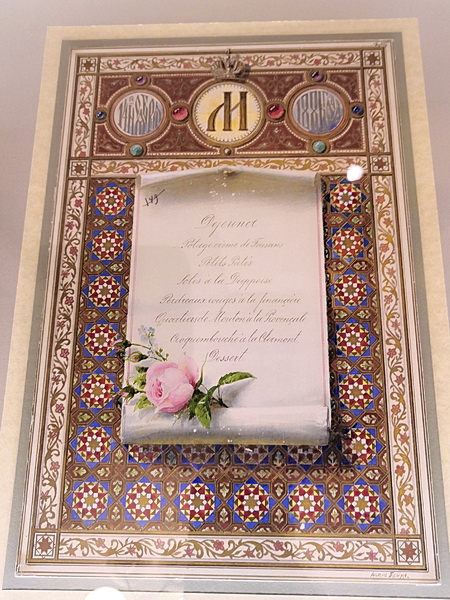 M
Dejeuner
Potage crème de Faisans
Petits Pâtés
Soles à la Dieppoise
Perdreaux rouges à la financière
Quartier de Mouton à la Provençale
Croquembouche à la Clermont
Dessert